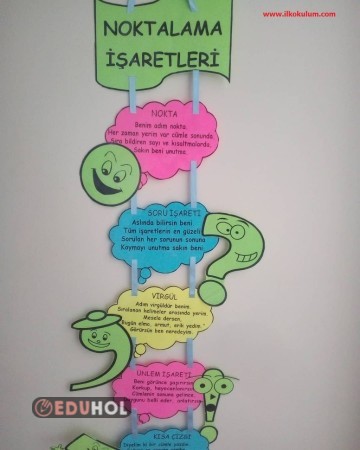 www.ilkokulum.com
NOKTALAMA
İŞARETLERİ
NOKTA
Benim adım nokta.
Her zaman yerim var cümle sonunda.
Sıra bildiren sayı ve kısaltmalarda,
Sakın beni unutma.
SORU İŞARETİ
Aslında bilirsin beni
Tüm işaretlerin en güzeli
Sorulan her sorunun sonuna
Koymayı unutma sakın beni.
VİRGÜL
Adım virgüldür benim.
Sıralanan kelimeler arasında yerim.
Mesela dersen,
Bugün elma, armut, erik yedim.
Görürsün ben neredeyim.
ÜNLEM İŞARETİ
Beni görünce şaşırırsın
Cümlenin sonuna gelince
KISA ÇİZGİ
EDUHOL